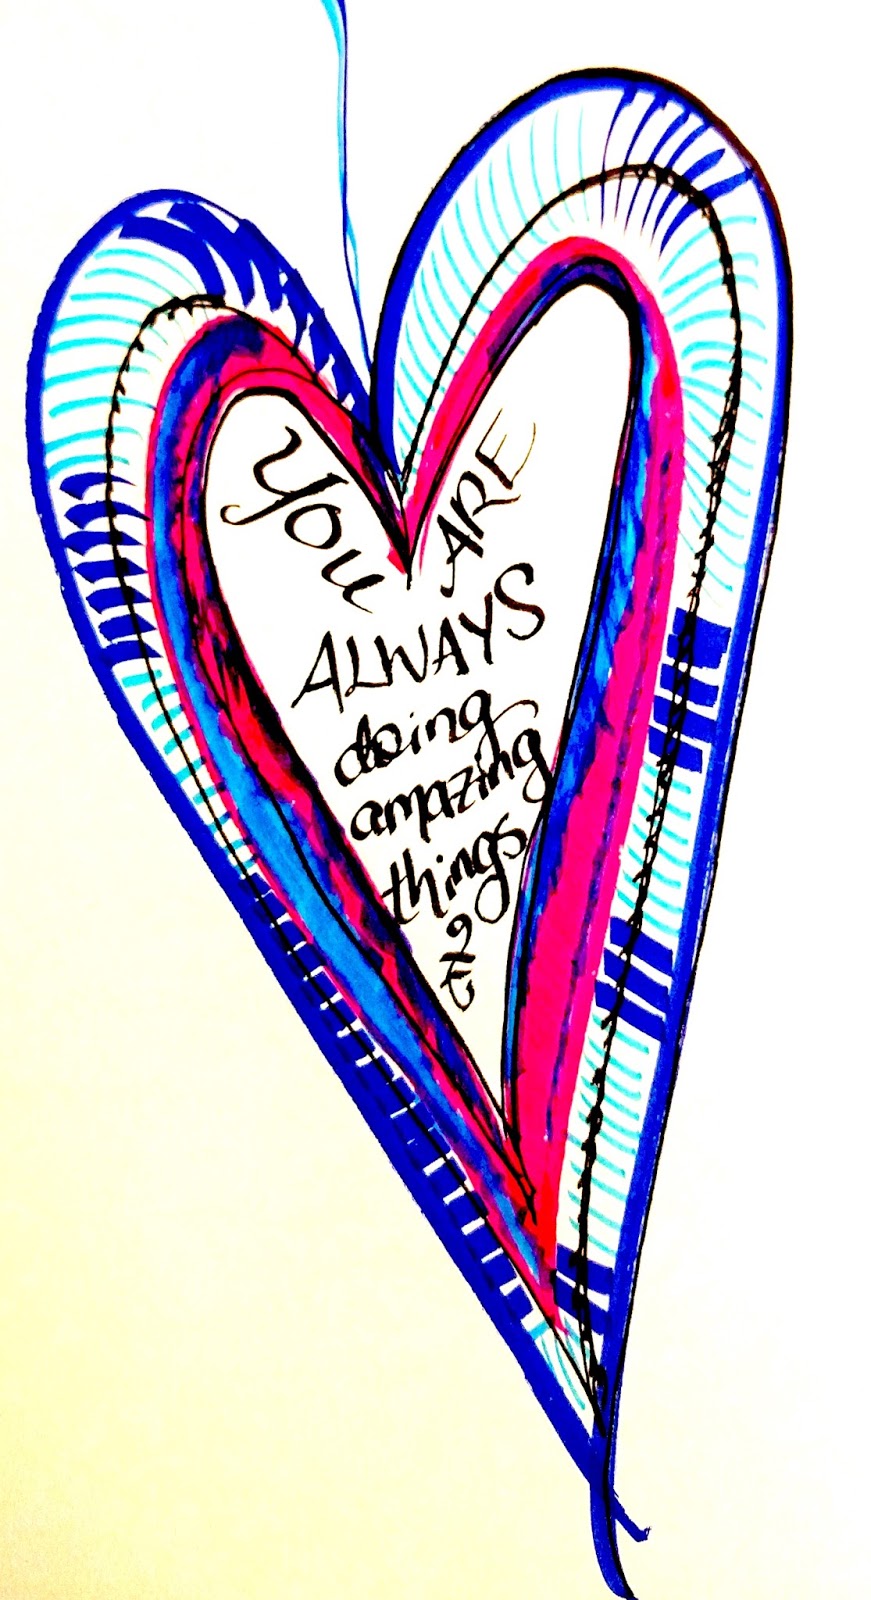 You ARE
ALWAYS
doing
amazing
things